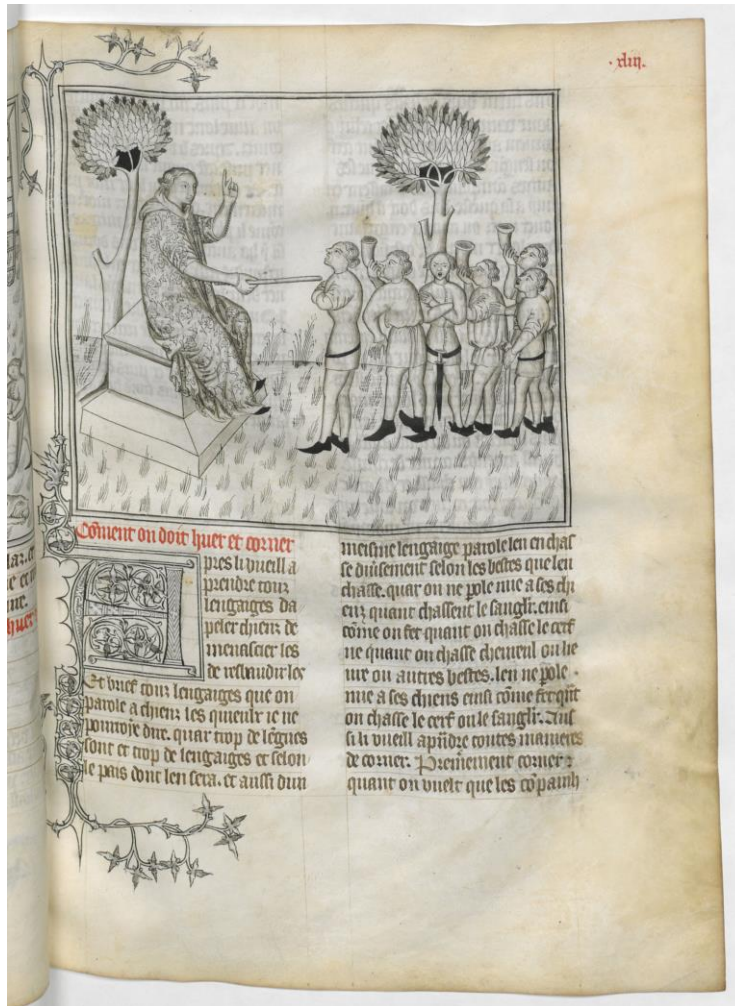 · xliij.
Cōment on doit huer et corner
Apres li vueill a
prendre touz
lengaiges da
peler chiens de
menascier les
de resbaudir les
Et brief touz lengaiges que on
parole a chiens les quieulx ie ne
pourroje dire. quar trop de lēgues
sont et trop de lengaiges et selon
le pais dont len sera. et aussi dun
meisme lengaige parole len en chas
se diuisement selon les bestes que len
chasse. quar on ne pole mie a ses chi
ens quant chassent le sanglir. einsi
cōme on fet quant on chasse le cerf
ne quant on chasse cheureul ou lie
ure ou autres bestes. len ne pole
mie a ses chiens einsi cōme fet qūt
on chasse le cerf ou le sanglir. Aussi
si li vueill apndre toutes manieres
de corner. Premiement corner
quant on vuelt que les cōpainh
laz. et
huer